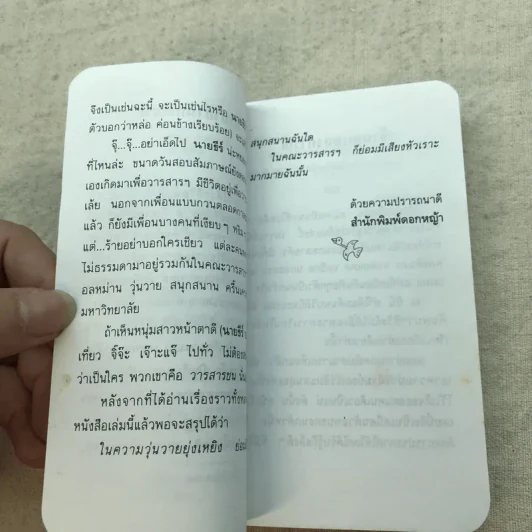 จึงเป็นเช่นฉะนี้ จะเป็นเช่นไรหรือ
ตัวบอกว่าหล่อ ค่อนข้างเรียบร้อย)
จุ๊...จุ๊...อย่าเอ็ดไป นายธีร์
ที่ไหนล่ะ ขนาดวันสอบสัมภาษณ์ยัง
เองเกิดมาเพื่อวารสารฯ มีชีวิตอยู่เพื่อ
เล้ย นอกจากเพื่อนแบบกวนตลอดกาล
แล้ว ก็ยังมีเพื่อนบางคนที่เงียบๆ
แต่...ร้ายอย่าบอกใครเชียว แต่ละคน
ไม่ธรรมดามาอยู่รวมกันในคณะวารสาร
อลหม่าน วุ่นวาย สนุกสนาน
มหาวิทยาลัย
ถ้าเห็นหนุ่มสาวหน้าตาดี (นายธีร์
เที่ยว จิ๊จ๊ะ เจ๊าะแจ๊ ไปทั่ว ไม่ต้อง
ว่าเป็นใคร พวกเขาคือ วารสารชน
หลังจากที่ได้อ่านเรื่องราวทั้ง
หนังสือเล่มนี้แล้วพอจะสรุปได้ว่า
ในความวุ่นวายยุ่งเหยิง
สนุกสนานฉันใด
ในคณะวารสารฯ ก็ย่อมมีเสียงหัวเราะ
มากมายฉันนั้น
ด้วยความปรารถนาดี
สำนักพิมพ์ดอกหญ้า